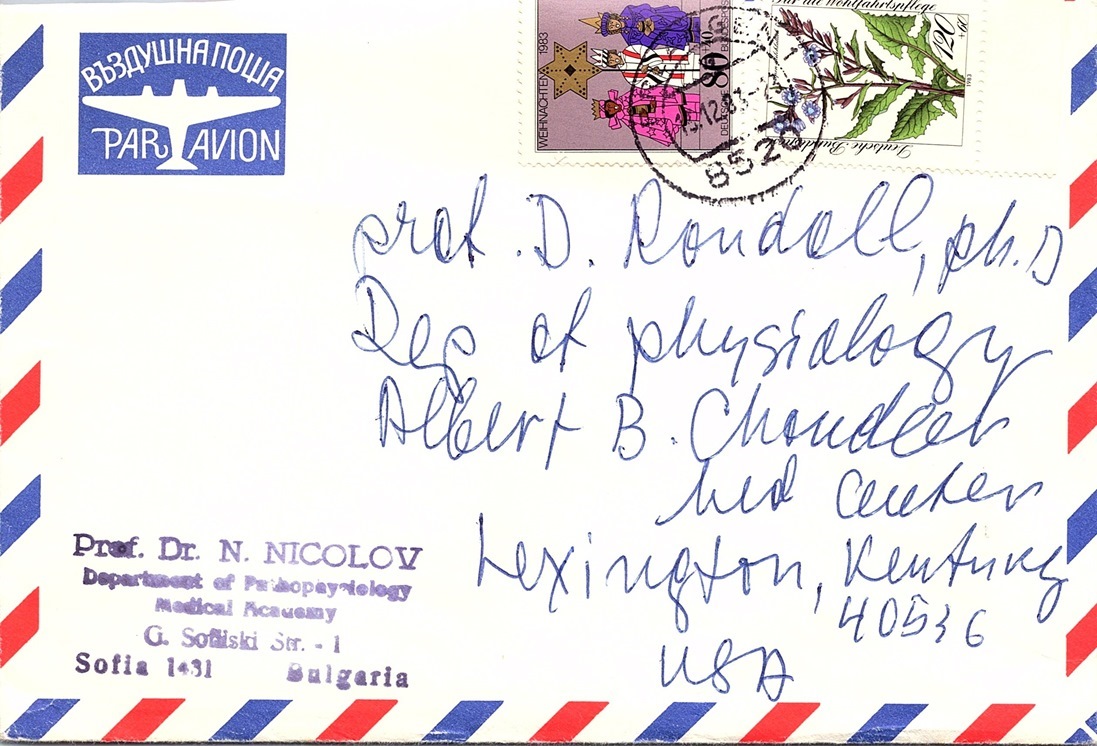 ВЪЗДУШНА ПОЩА
PAR AVION
WEIHNACHTEN 1983
80
Für die Wohlfahrtspflege
1983
8520
prof. D. Randall, ph.D
Dep of physiology
Albert B. Chandler
Med Center
Lexington, Kentucky
40536
USA
Prof. Dr. N. NICOLOV
Department of Pathopsysiology
Medical Academy
G. Sofiiski Str. - 1
Sofia 1431 Bulgaria